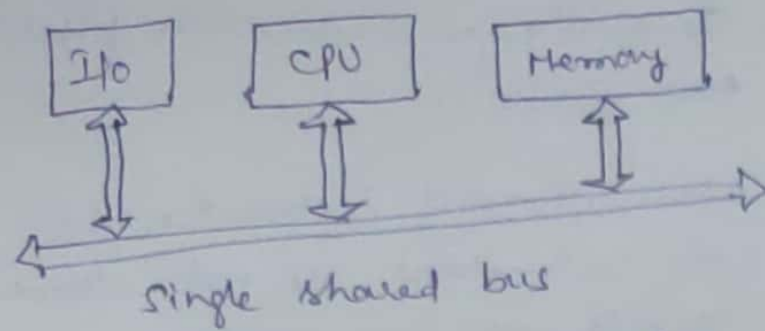 I/O
CPU
Memory
Single shared bus